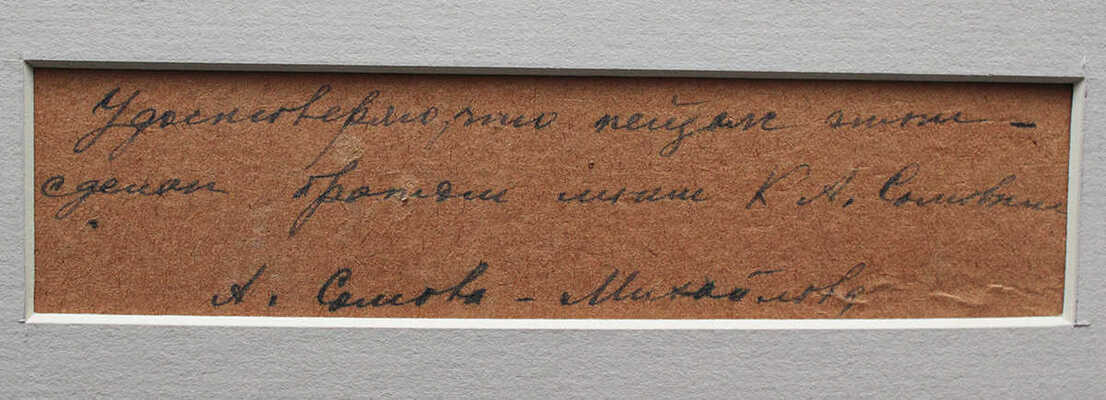 Удостоверяю, что пейзаж этот –
сделан братом моим К. А. Сомовым
А. Сомова – Михайлова